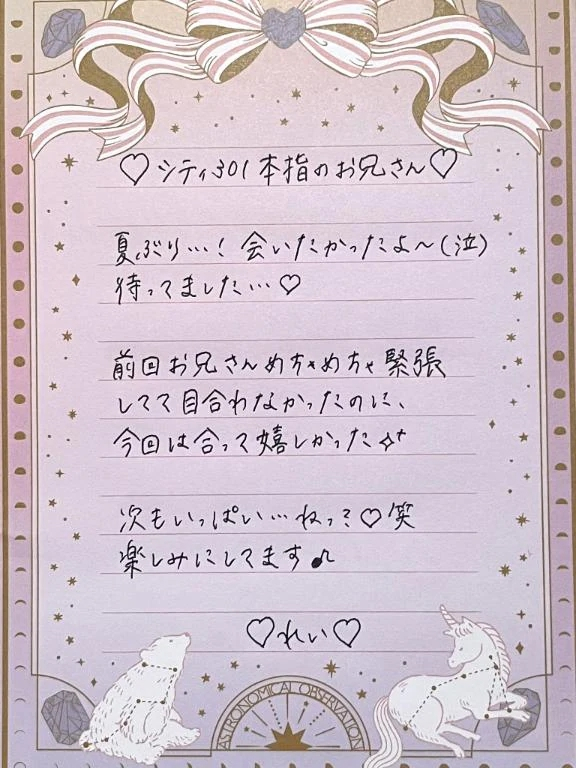 ♡シティ301本指のお兄さん♡
夏ぶり…！会いたかったよ〜(泣)
待ってました…♡
前回お兄さんめちゃめちゃ緊張
してて目合わなかったのに、
今回は合って嬉しかった✧⁺
次もいっぱい…ねっ？♡笑
楽しみにしてます♪
♡れい♡
ASTRONOMICAL OBSERVATION